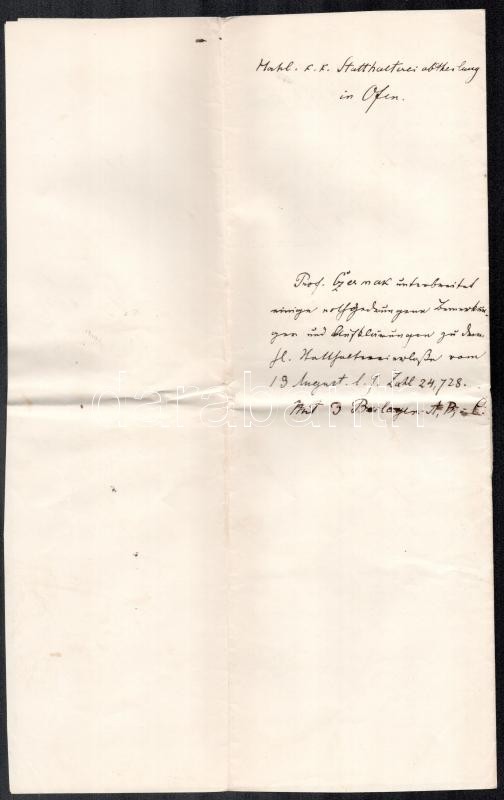 Wohl. k. k. Statthaltereiabtheilung
in Ofen.
Prof. Czermak unterbreitet
einige nothgedrungene Bemerkun-
gen und Aufklärungen zu dem
hl. Statthaltereierlaße vom
19 August l. J. Zahl 24,728.
Mit 3 Beilagen A, B, C.
darabanth